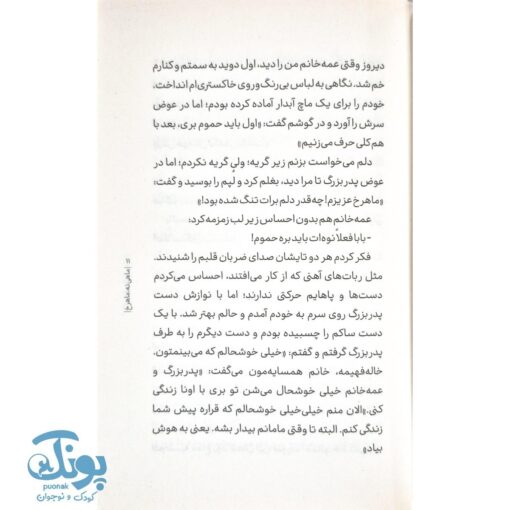 دیروز وقتی عمه‌خانم من را دید، اول دوید به سمتم و کنارم
خم شد. نگاهی به لباس بی‌رنگ‌وروی خاکستری‌ام انداخت.
خودم را برای یک ماچ آبدار آماده کرده بودم؛ اما در عوض
سرش را آورد و در گوشم گفت: «اول باید حموم بری، بعد با
هم کلی حرف می‌زنیم»
دلم می‌خواست بزنم زیر گریه؛ ولی گریه نکردم؛ اما در
عوض پدربزرگ تا مرا دید، بغلم کرد و لپم را بوسید و گفت:
«ماهرخ عزیزم! چه‌قدر دلم برات تنگ شده بود!»
عمه‌خانم هم بدون احساس زیر لب زمزمه کرد:
- بابا فعلاً نوه‌ات باید بره حموم!
فکر کردم هر دو تایشان صدای ضربان قلبم را شنیدند.
مثل ربات‌های آهنی که از کار می‌افتند، احساس می‌کردم
دست‌ها و پاهایم حرکتی ندارند؛ اما با نوازش دست
پدربزرگ روی سرم به خودم آمدم و حالم بهتر شد. با یک
دست ساکم را چسبیده بودم و دست دیگرم را به طرف
پدربزرگ گرفتم و گفتم: «خیلی خوشحالم که می‌بینمتون.
خاله‌فهیمه، خانم همسایه‌مون می‌گفت: «پدربزرگ و
عمه‌خانم خیلی خوشحال می‌شن تو بری با اونا زندگی
کنی.» الان منم خیلی‌خیلی خوشحالم که قراره پیش شما
زندگی کنم. البته تا وقتی مامانم بیدار بشه. یعنی به هوش
بیاد»
پونک
puonak
کودک و نوجوان